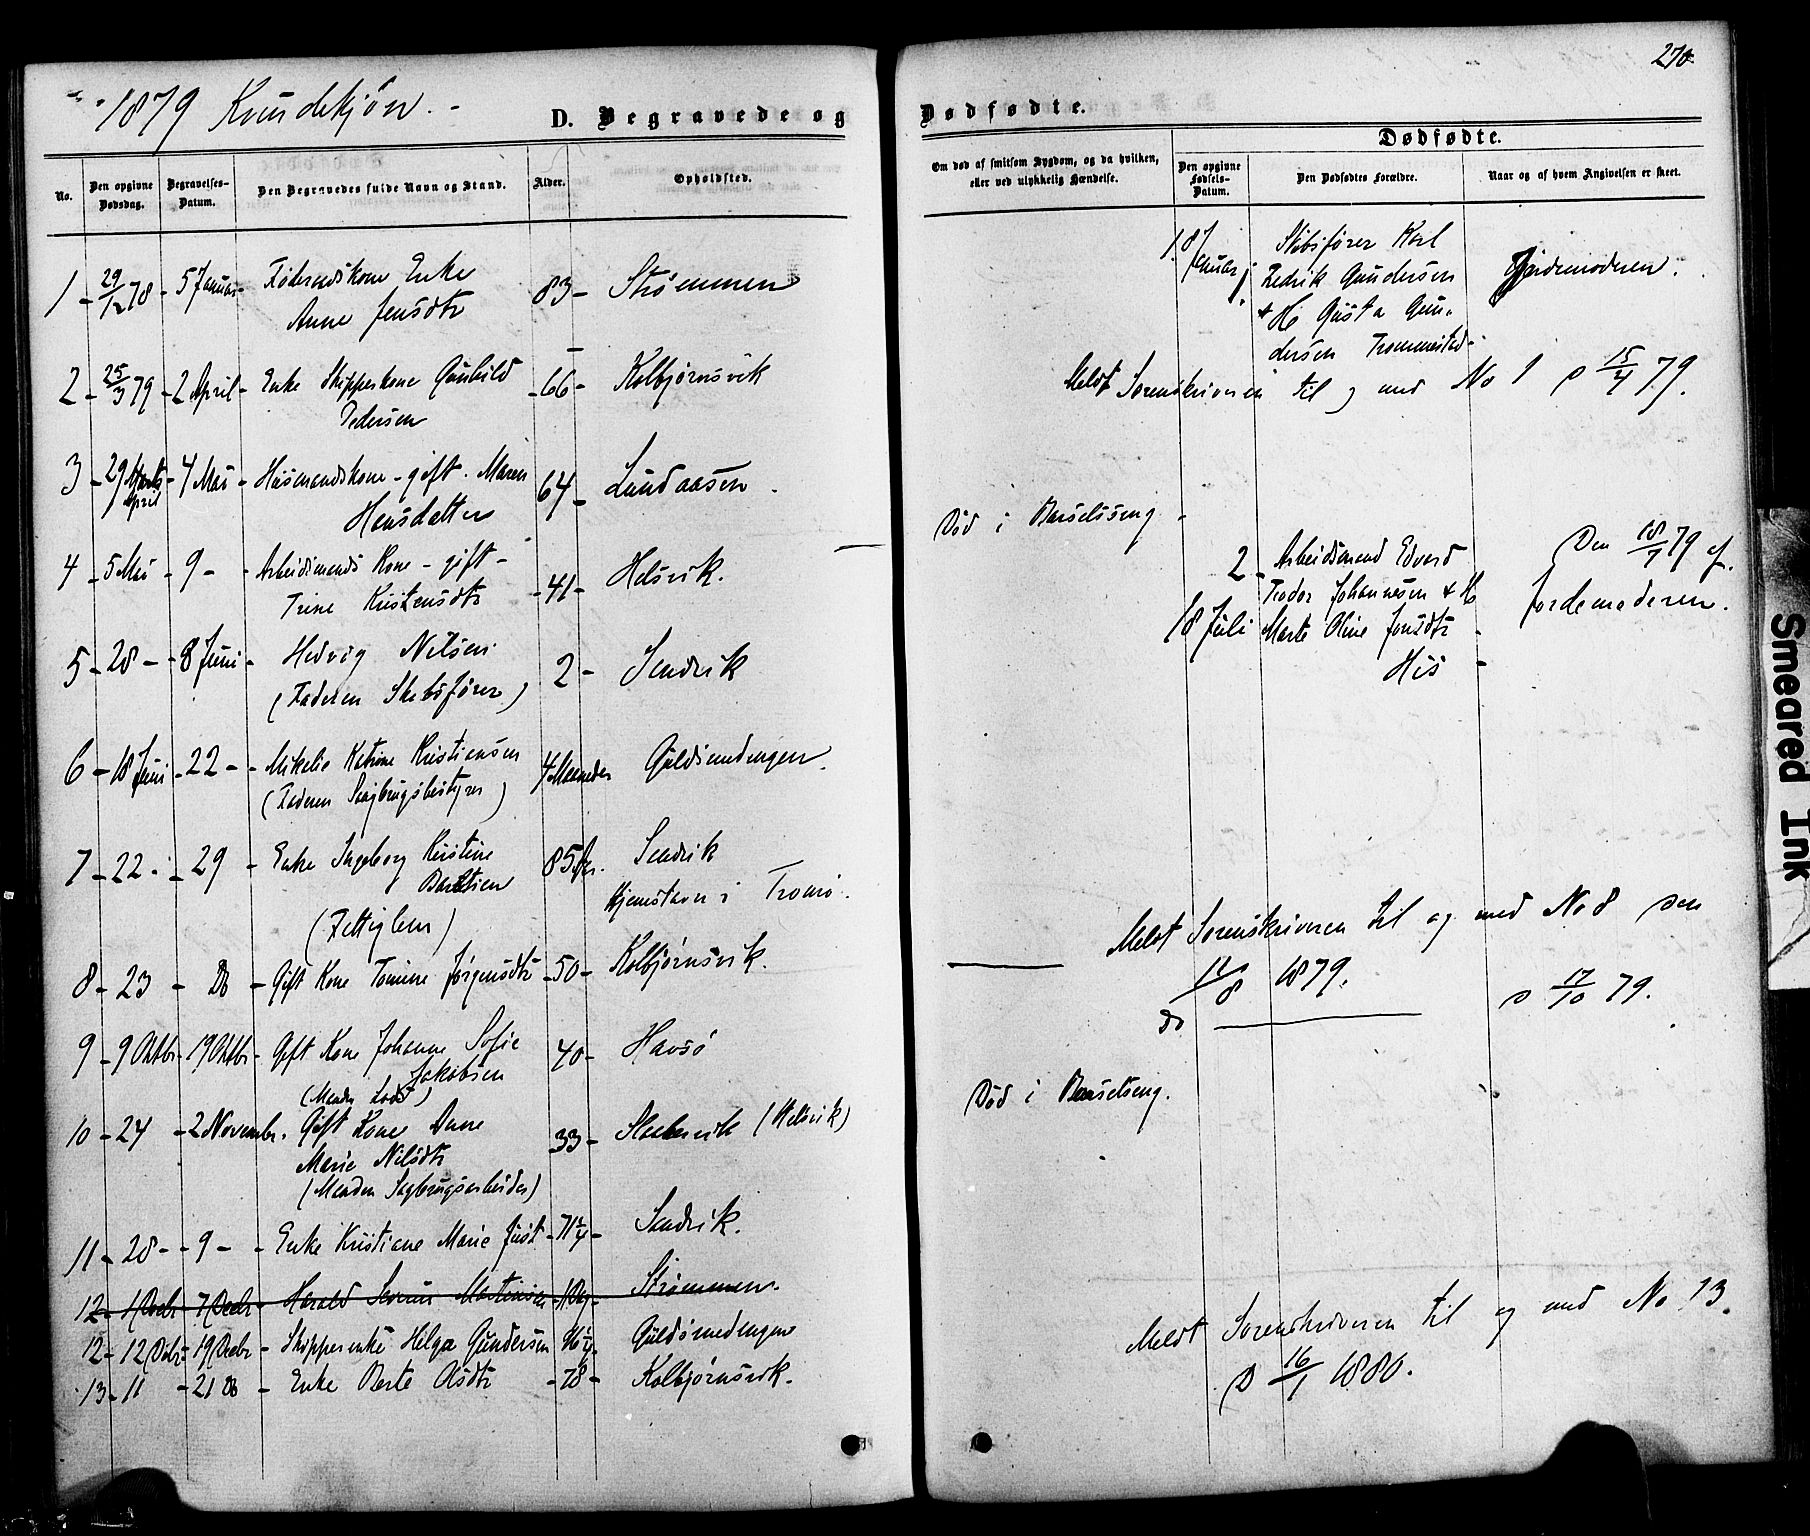 1879 Kvindekjøn.
D. Begravede og
No.
Den opgivne Dødsdag.
Begravelses-Datum.
Den Begravedes fulde Navn og Stand.
Alder.
Opholdsted.
1 - 29/12 78 - 5 Januar - Føderaadskone Enke 83 - Strømmen
Anne Jensdtr
2 - 25/3 79 - 2 April - Enke Skipperkone Gunhild - 66 - Kolbjørnsvik
Pedersen
3 - 29 Marts - 4 Mai - Husmandskone - gift. Maren 64 - Lundaasen.
April
Hansdatter
4 - 5 Mai - 9 - - Arbeidsmands Kone - gift - - 41 - Helsvik.
Trine Kristensdtr
5 - 28 - - 8 Juni - Hedvig Nilsen 2 - Sandvik
(Faderen Skibsfører)
6 - 18 Juni - 22 - - Mikalie Katrine Kristiansen 4 Maaneder Guldsmedengen.
(Faderen Sagbrugsbestyrer)
7 - 22 - - 29 - Enke Ingeborg Kirstine 85 Aar. Sandvik
Hjemstavn i Tromø.
(Fattiglem)
8 - 23 - Do - Gift Kone Tomine Jørgensdtr - 50 - Kolbjørnsvik.
9 - 9 Oktbr - 19 Oktbr - Gift Kone Johanne Sofie 40 - Havsø
Jakobsen
(Manden Lods)
10 - 24 - 2 Novembr. Gift Kone Anne 33 - (Helsvik)
Marie Nilsdtr
(Manden Sagbrugsarbeider)
11 - 28 - - 9 - - Enke Kristiane Marie Just - 71 1/4 - Sandvik.
12 - 1 Decbr - 7 Decbr - Harald Severin Martinsen - 1 Dag - Strømmen.
12 - 12 Decbr - 19 Decbr - Skipperenke Helga Gundersen Guldsmedengen
13 - 11 - 21 Do - Enke Berte Olsdtr - 78 - Kolbjørnsvik.
270
Dødfødte.
Om død af smitsom Sygdom, og da hvilken, eller ved ulykkelig Hændelse.
Dødfødte.
Den opgivne Fødsels-Datum.
Den Dødfødtes Forældre.
Naar og af hvem Angivelsen er skeet.
1. 8 Januar Skibsfører Karl Jordemoderen.
Fredrik Gundersen
+ H. Gusta Gun-
dersen Trommestad -
Meldt Sorenskriveren til og med No 1 D 15/4 79.
Død i Barselsseng -
2 - Arbeidsmand Edvard Den 18/7 79 af
Teodor Johannesen + H Jordemoderen.
18 Juli Marte Oline Jensdtr -
His -
Meldt Sorenskriveren til og med No 8 den
11/8 1879.
Do D 17/10 79.
Død i Barselseng.
Meldt Sorenskriveren til og med No 13.
D 16/1 1880.
Smeared Ink